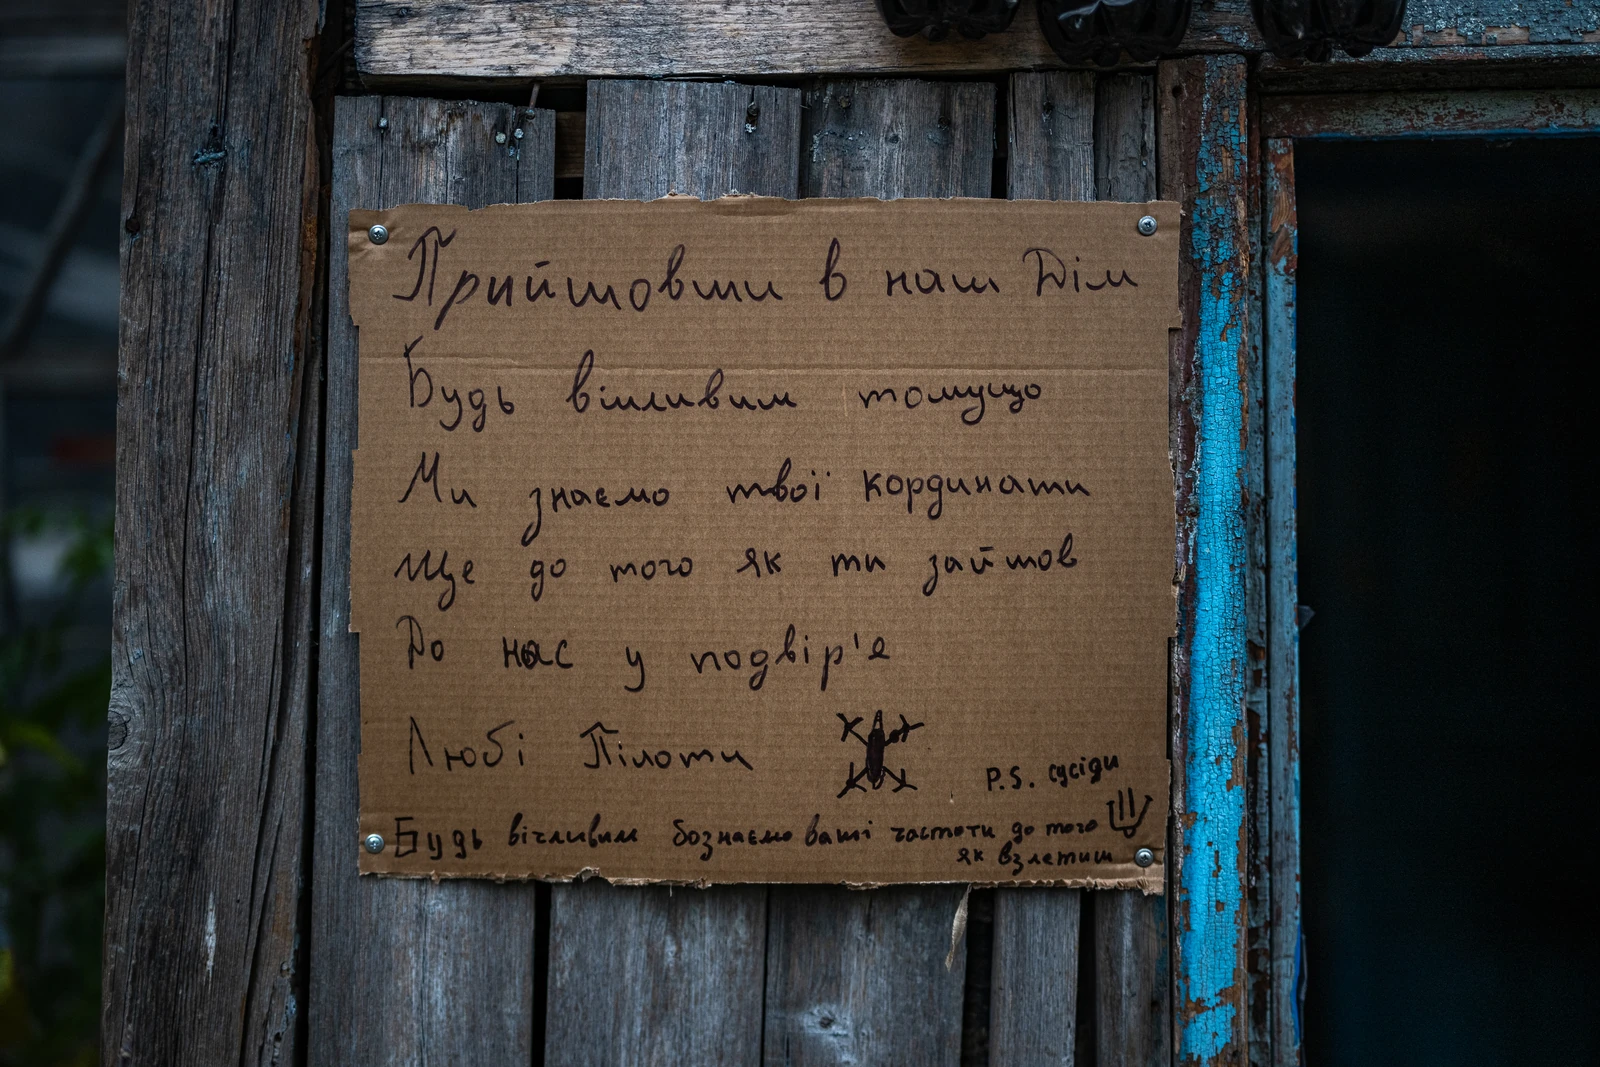 Прийшовши в наш Дім
Будь вічливим томущо
Ми знаємо твої кординати
Ще до того як ти зайшов
До нас у подвір'є
Любі Пілоти
P.S. сусіди
Будь вічливим бознаємо ваші частоти до того
як взлетиш